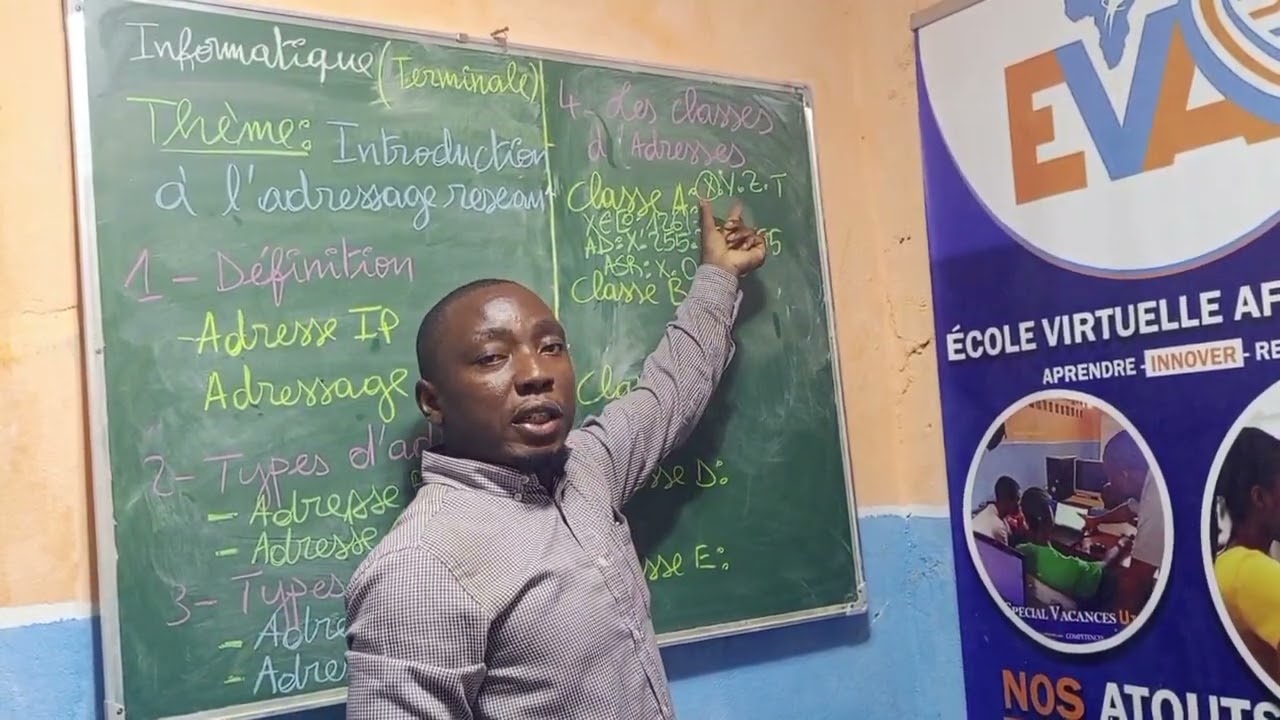 Informatique (Terminale)
Thème: Introduction
à l'adressage reseau
1 - Définition
- Adresse IP
Adressage
2 - Types d'ad
- Adresse
- Adresse
3 - Types
- Adre
- Adre
4 - Les classes
d'Adresses
Classe A: X.Y.Z.T
X∈[0;126]
AD: X.255.
ASR: X.0
Classe B
Cla
sse D:
sse E:
EVA
ÉCOLE VIRTUELLE AF
APRENDRE - INNOVER - RE
SPÉCIAL VACANCES
NOS ATOUTS